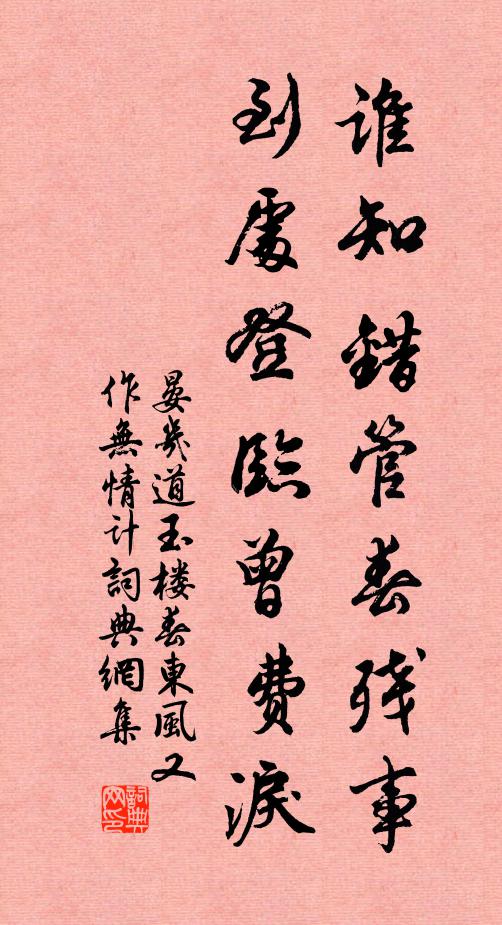 誰知錯管春殘事
到處登臨曾費淚
晏幾道玉楼春東風又
作無情計詞典網集
詞典网印